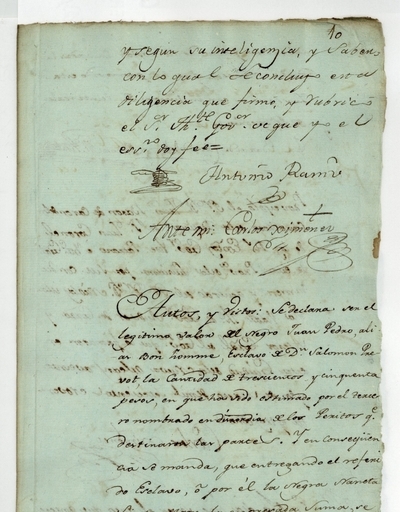 10
y segun su inteligencia, y Saber
con lo qual se concluyo esta
diligencia que firmo, y rubrico
el S.r Th.te Gov.or de que yo el
ess.no doy fee=
Antonio Ramz
Antemi Carlos Ximenez
Autos, y Vistos: Se declara ser el
legitimo valor del Negro Juan Pedro, ali
as Bon homme, Esclavo de D.n Salomon Pre
vot la Cantidad de trescientos y cinquenta
pesos, en que ha sido estimado por el terce
ro nombrado en discordia de los Peritos q.e
destinaron las partes. Y en consequen
cia se manda, que entregando el referi
do Esclavo, ó por él la Negra Naneta
Suma, se